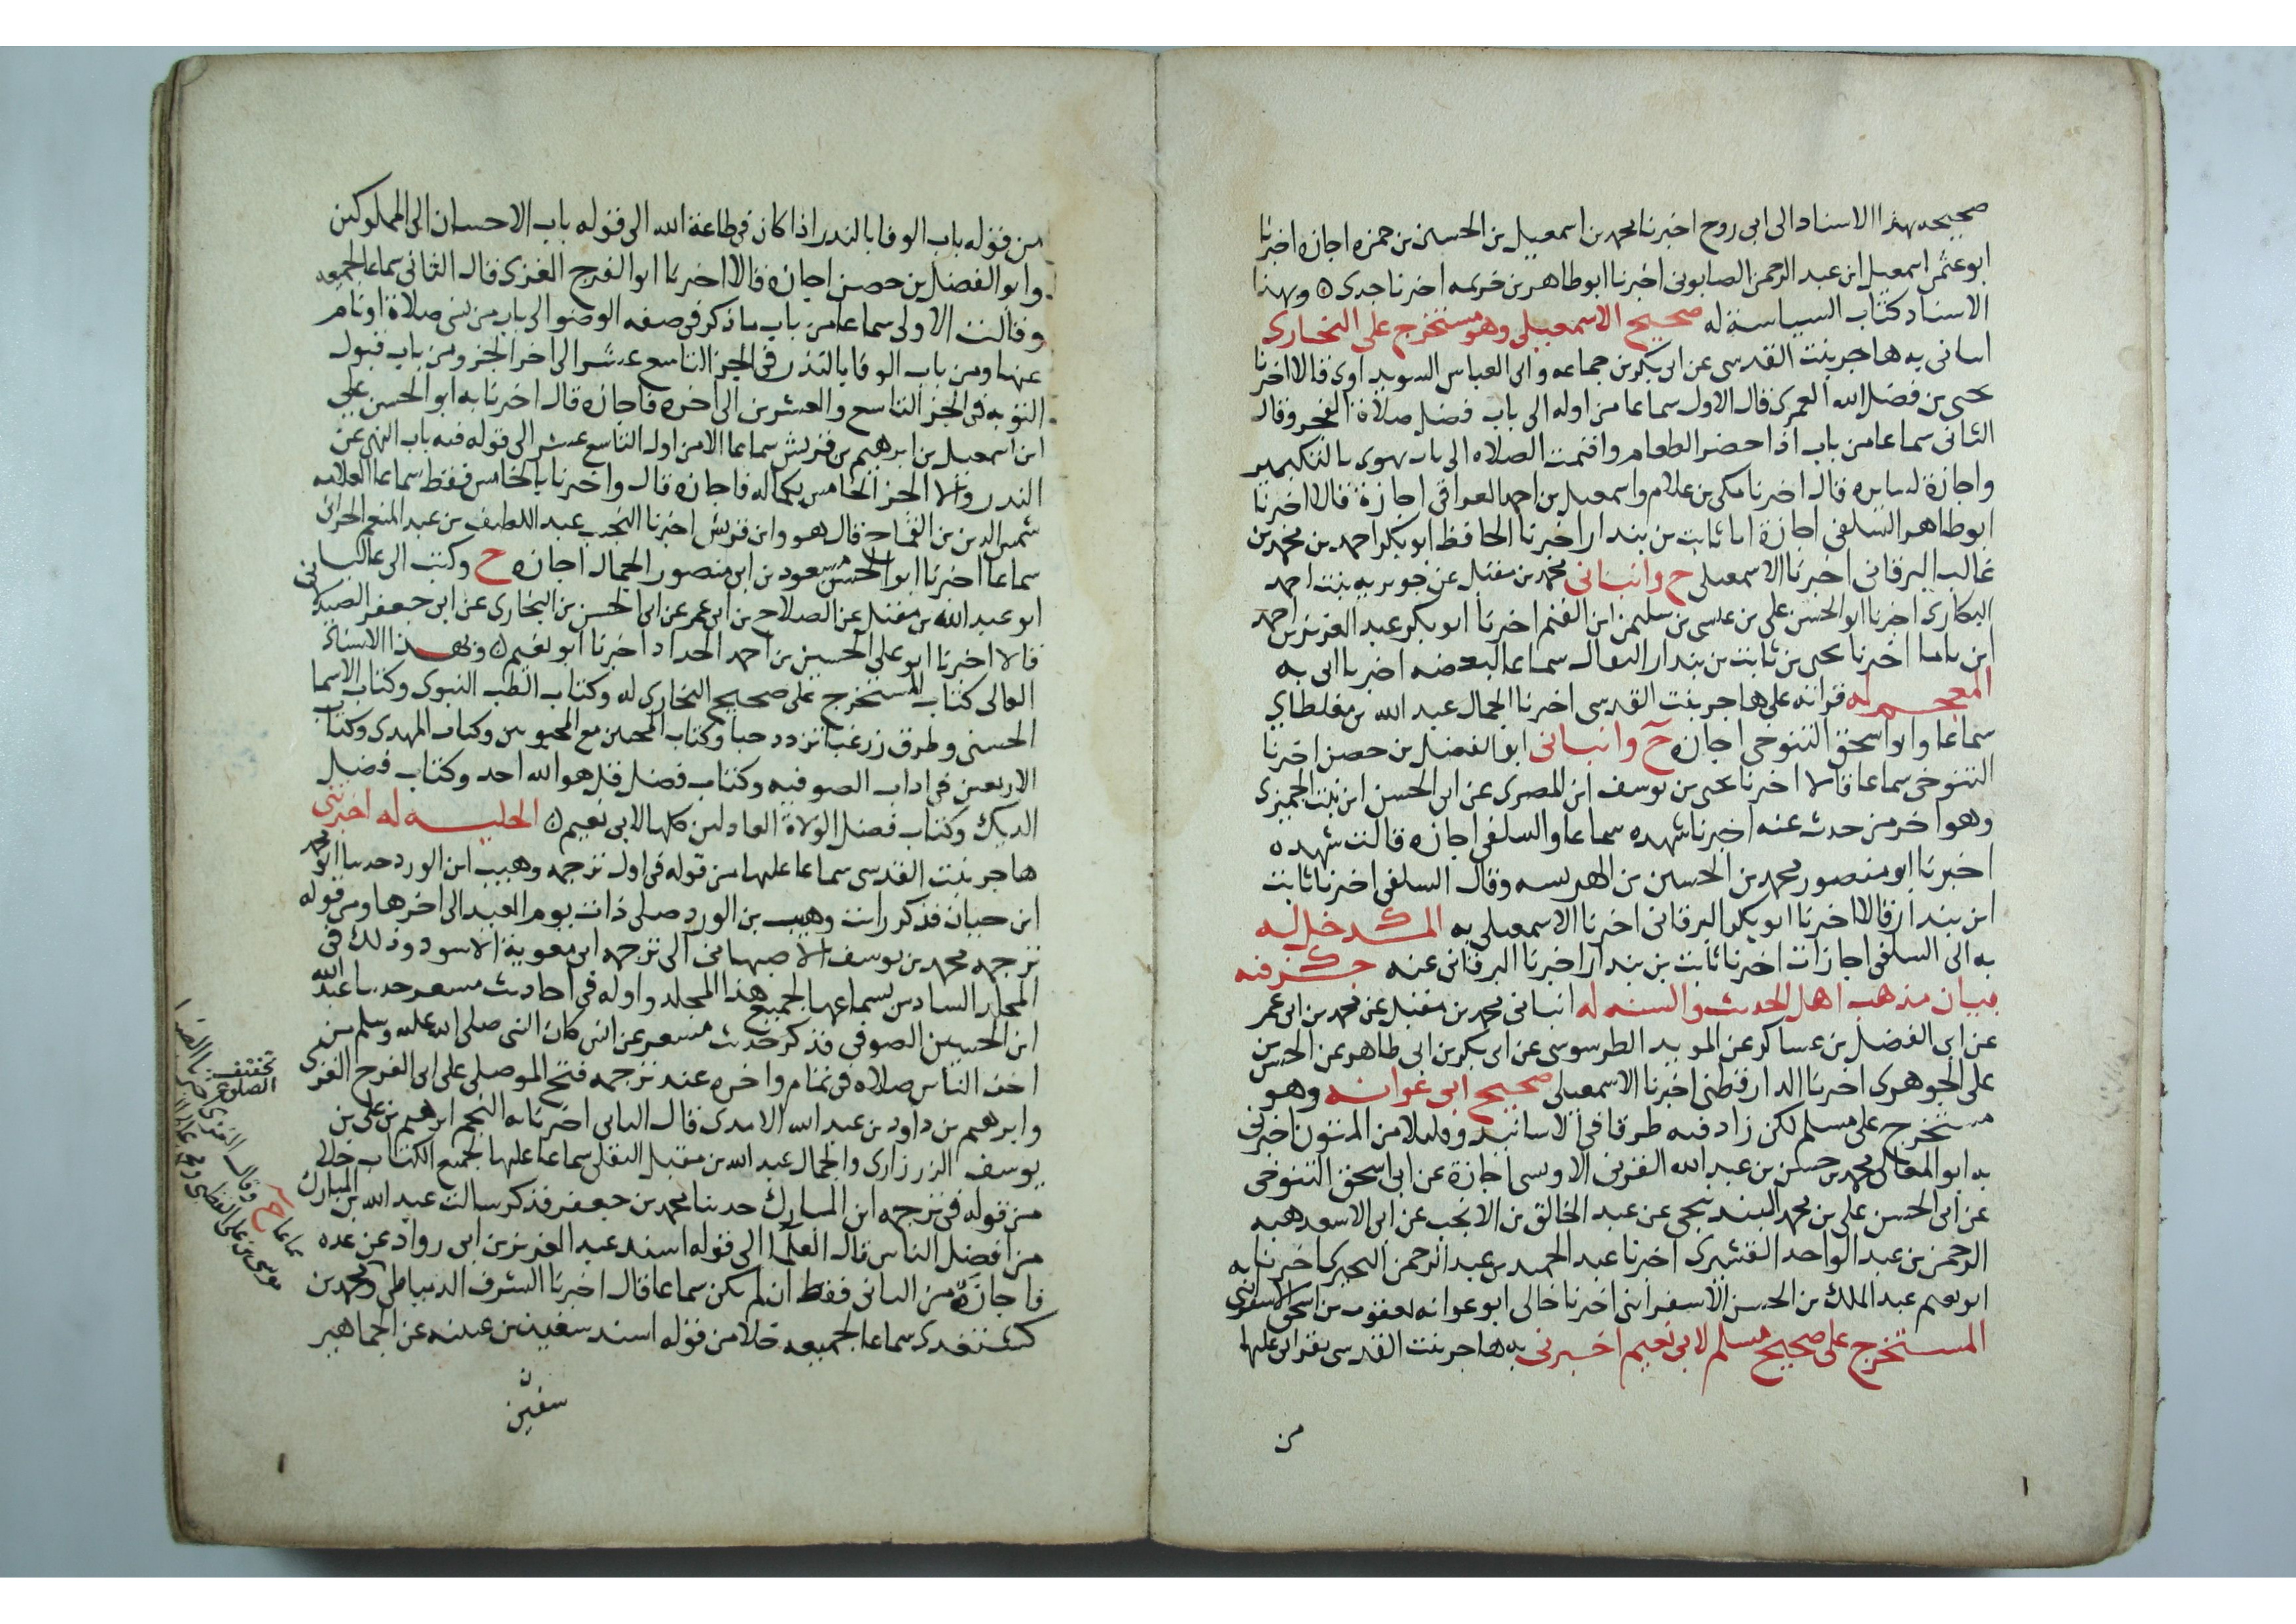 صحيحه بهذا الاسناد الى ابى روح اخبرنا محمد بن اسمعيل بن الحسين بن حمزه اجازه اخبرنا
ابو عثمن اسمعيل ابن عبد الرحمن الصابونى اخبرنا ابو طاهر بن خزيمه اخبرنا جدى ٥ وبهذا
الاسناد كتاب السياسة له صحيح الاسمعيلى وهو مستخرج على البخارى
انبانى به هاجر بنت القدسى عن ابى بكر بن جماعه وابى العباس السويداوى قالا اخبرنا
يحيى بن فضل الله العمرى قال الاول سماعا من اوله الى باب فضل صلاة الفجر وقال
الثانى سماعا من باب اذا حضر الطعام واقيمت الصلاه الى باب يهوى بالتكبير
واجازة لسايره قال اخبرنا مكى بن علام واسمعيل بن احمد العراقى اجازة قالا اخبرنا
ابو طاهر السلفى اجازة انا ثابت بن بندار اخبرنا الحافظ ابو بكر احمد بن محمد بن
غالب البرقانى اخبرنا الاسمعيلى ح وانبانى محمد بن مقبل عن جويريه بنت احمد
الهكارى اخبرنا ابو الحسن على بن عيسى بن سليمن ابن القيم اخبرنا ابو بكر عبد العزيز بن احمد
ابن باقا اخبرنا يحيى بن ثابت بن بندار البقال سماعا لبعضه اخبرنا ابى به
المعجم له قراته على هاجر بنت القدسى اخبرنا الجمال عبد الله بن مغلطاي
سماعا وابو اسحق التنوخى اجازه ح وانبانى ابو الفضل بن حصن اخبرنا
التنوخى سماعا قالا اخبرنا يحيى بن يوسف ابن المصرى عن ابى الحسن ابن بنت الجميزى
وهو اخر من حدث عنه اخبرنا شهده سماعا والسلفى اجازه قالت شهده
اخبرنا ابو منصور محمد بن الحسين بن الهريسه وقال السلفى اخبرنا ثابت
ابن بندار قالا اخبرنا ابو بكر البرقانى اخبرنا الاسمعيلى به المدخل له
به الى السلفى اجازات اخبرنا ثابت بن بندار اخبرنا البرقانى عنه جزفيه
بيان مذهب اهل الحديث والسنه له انبانى محمد بن مقبل عن محمد بن ابى عمر
عن ابى الفضل بن عساكر عن المويد الطوسى عن ابى بكر بن ابى طاهر عن الحسن بن
على الجوهرى اخبرنا الدارقطنى اخبرنا الاسمعيلى صحيح ابى عوانه وهو
مستخرج على مسلم لكن زاد فيه طرقا فى الاسانيد وقليلا من المتون اخبرنى
به ابو المعالى محمد بن حسن بن عبد الله القرنى الاويسى اجازة عن ابى اسحق التنوخى
عن ابى الحسن على بن محمد البندنيجى عن عبد الخالق بن الانجب عن ابى الاسعد هبه
الرحمن بن عبد الواحد القشيرى اخبرنا عبد الحميد بن عبد الرحمن البحيرى اخبرنا به
ابو نعيم عبد الملك بن الحسن الاسفراينى اخبرنا خالى ابو عوانه يعقوب بن اسحق الاسفراينى
المستخرج على صحيح مسلم لابى نعيم اخبرنى به هاجر بنت القدسى بقراتى عليها
من
من قوله باب الوفا بالنذر اذا كان فى طاعة الله الى قوله باب الاحسان الى المملوكين
وابو الفضل بن حصن اجازه قالا اخبرنا ابو الفرج الغزى قال الثانى سماعا لجميعه
وقالت الاولى سماعا من باب ما ذكر فى صفه الوضو الى باب من نسى صلاة او نام
عنها ومن باب الوفا بالنذر فى الجز التاسع عشر الى اخر الجز ومن باب قبول
التوبه فى الجز التاسع والعشرين الى اخره فاجازه قال اخبرنا به ابو الحسن على
ابن اسمعيل بن ابرهيم بن قريش سماعا الا من اول التاسع عشر الى قوله فيه باب النهى عن
النذر والا الجز الخامس بكماله فاجازه قال واخبرنا بالخامس فقط سماعا العلامه
شمس الدين بن القماح قال هو وابن قريش اخبرنا النجيب عبد اللطيف بن عبد المنعم الحرانى
سماعا اخبرنا ابو الحسن مسعود بن ابى منصور الجمال اجازه ح وكتب الى عاليا
ابو عبد الله بن مقبل عن الصلاح بن ابى عمر عن ابى الحسن بن البخارى عن ابى جعفر الصيدلانى
قالا اخبرنا ابو على الحسين بن احمد الحداد اخبرنا ابو نعيم ٥ وبهذا الاسناد
العالى كتاب المستخرج على صحيح البخارى له وكتاب الطب النبوى وكتاب الاسما
الحسنى وطرق زر غبا تزدد حبا وكتاب المحبين مع المحبوبين وكتاب المهدى وكتاب
الاربعين فى اداب الصوفيه وكتاب فضل قل هو الله احد وكتاب فضل
الديك وكتاب فضل الولاة العادلين كلها لابى نعيم ٥ الحليه له اخبرتنى
هاجر بنت القدسى سماعا عليها من قوله فى اول ترجمه وهيب ابن الورد حدثنا ابو محمد
ابن حبان فذكر رايت وهيب بن الورد صلى ذات يوم العيد الى اخرها ومن قوله
ترجمه محمد بن يوسف الاصبهانى الى ترجمه ابى معوية الاسود وذلك فى
المجلد السادس بسماعها لجميع هذا المجلد واوله فى احاديث مسعر حدثنا عبد الله
ابن الحسين الصوفى فذكر حديث مسعر عن انس كان النبى صلى الله عليه وسلم من
اخف الناس صلاه فى تمام واخره عند ترجمه فتح الموصلى على ابى الفرج الغزى
وابرهيم بن داود بن عبد الله الامدى قال الثانى اخبرنا به النجم ابرهيم بن على بن
يوسف الزرزارى والجمال عبد الله بن مقبل البغلى سماعا عليها لجميع الكتاب خلا
من قوله فى ترجمه ابن المبارك حدثنا محمد بن جعفر فذكر سالت عبد الله بن المبارك
من افضل الناس قال العلما الى قوله اسند عبد العزيز بن ابى رواد عن عده
فاجازة من الثانى فقط ان لم يكن سماعا قال اخبرنا الشرف الدمياطى ومحمد بن
كشتغدى سماعا لجميعه خلا من قوله اسند سفين بن عيينه عن الجماهير
سفين
سماعا ح وقال الغزى اخبرنا